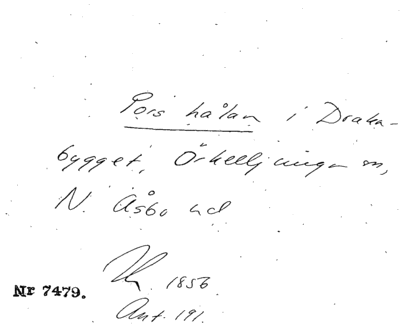 Pors hålan i Draka-
bygget, Örkelljunga sn,
N. Åsbo hd
1856
Nr 7479.
Ant. 191.